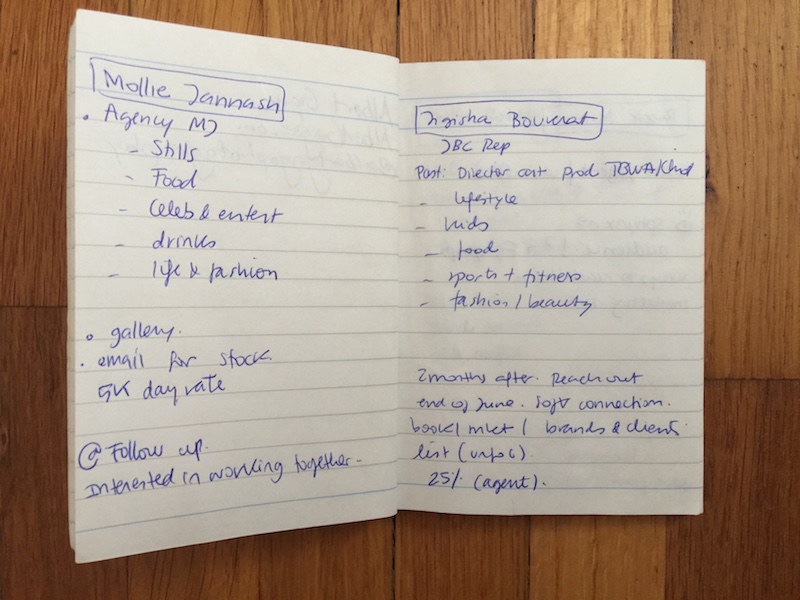 Mollie Jannash
• Agency MJ
- Stills
- Food
- Celeb & entert
- drinks
- life & fashion
• gallery.
• email for stock.
5K day rate
@ Follow up.
Interested in working together -
Bouverat
JBC Rep
Past: Director art prod TBWA/Chiat
- lifestyle
- kids
- food
- sports + fitness
- fashion / beauty
2 months after. Reach out
end of June. Soft connection.
book / mket / brands & clients.
list (
25% (agent).